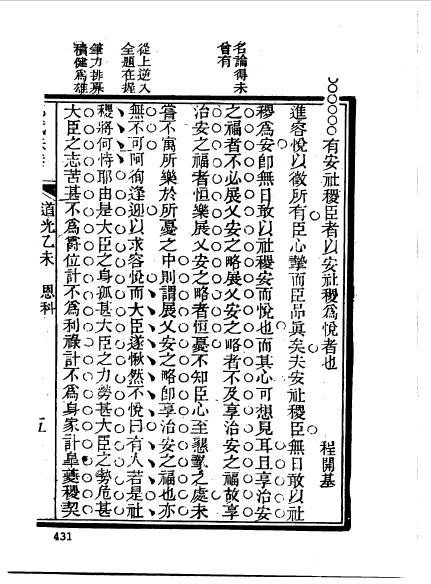 名論得未
曾有
從上逆入
全題在握
筆力排奡
積健爲雄
有安社稷臣者以安社稷爲悅者也
程開基
進容悅以徵所有臣心摯而臣品眞矣夫安社稷臣無日敢以社
稷爲安卽無日敢以社稷安而悅也而其心可想見耳且享治安
之福者不必展乂安之略展乂安之略者不及享治安之福故享
治安之福者恒樂展乂安之略者恒憂不知臣心至懇摯之處未
嘗不寓所樂於所憂之中則謂展乂安之略卽享治安之福也亦
無不可阿徇逢迎以求容悅而大臣遂愀然不悅曰有人若是社
稷將何恃耶由是大臣之身孤甚大臣之力勞甚大臣之勢危甚
大臣之志苦甚不爲爵位計不爲利祿計不爲身家計皐夔稷契
道光乙未 恩科
五
431